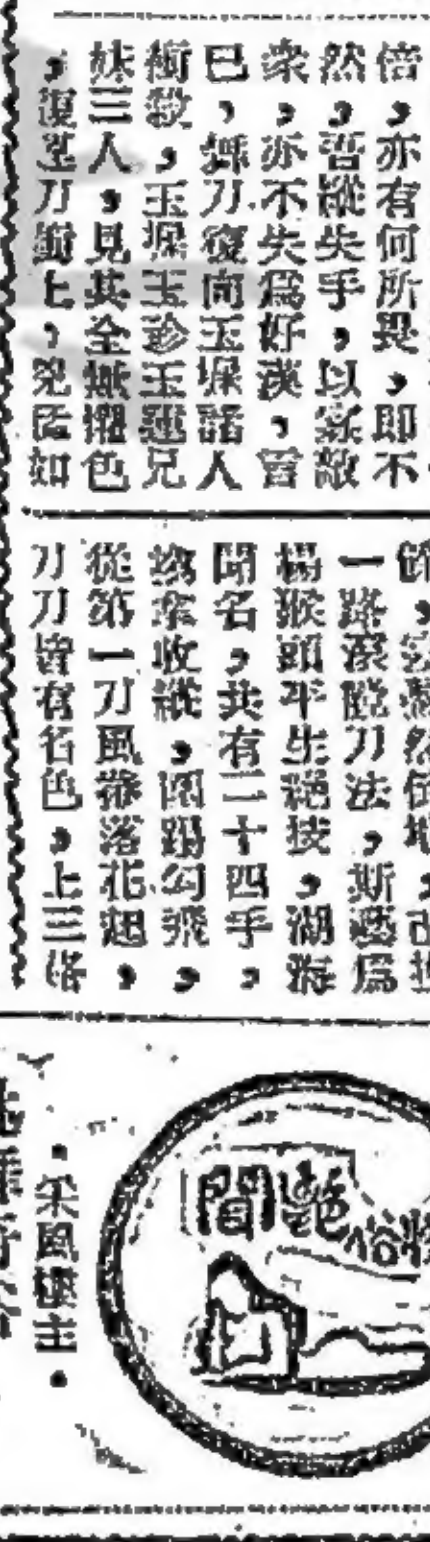 倍，亦有何所畏，即不
然，吾縱失手，以寡敵
衆，亦不失爲好漢，言
已，舞刀復向玉堁諸人
衝殺，玉堁玉珍玉蓮兄
妹三人，見其全無懼色
，復逞刀衝上，兇
如
一路滾膛刀法，斯藝爲
楊猴頭平生絕技，湖海
聞名，共有二十四手，
收縱，閃蹋勾飛，
從第一刀風捲落花起，
刀刀皆有名色，上三路
艶聞
•采風樓主•